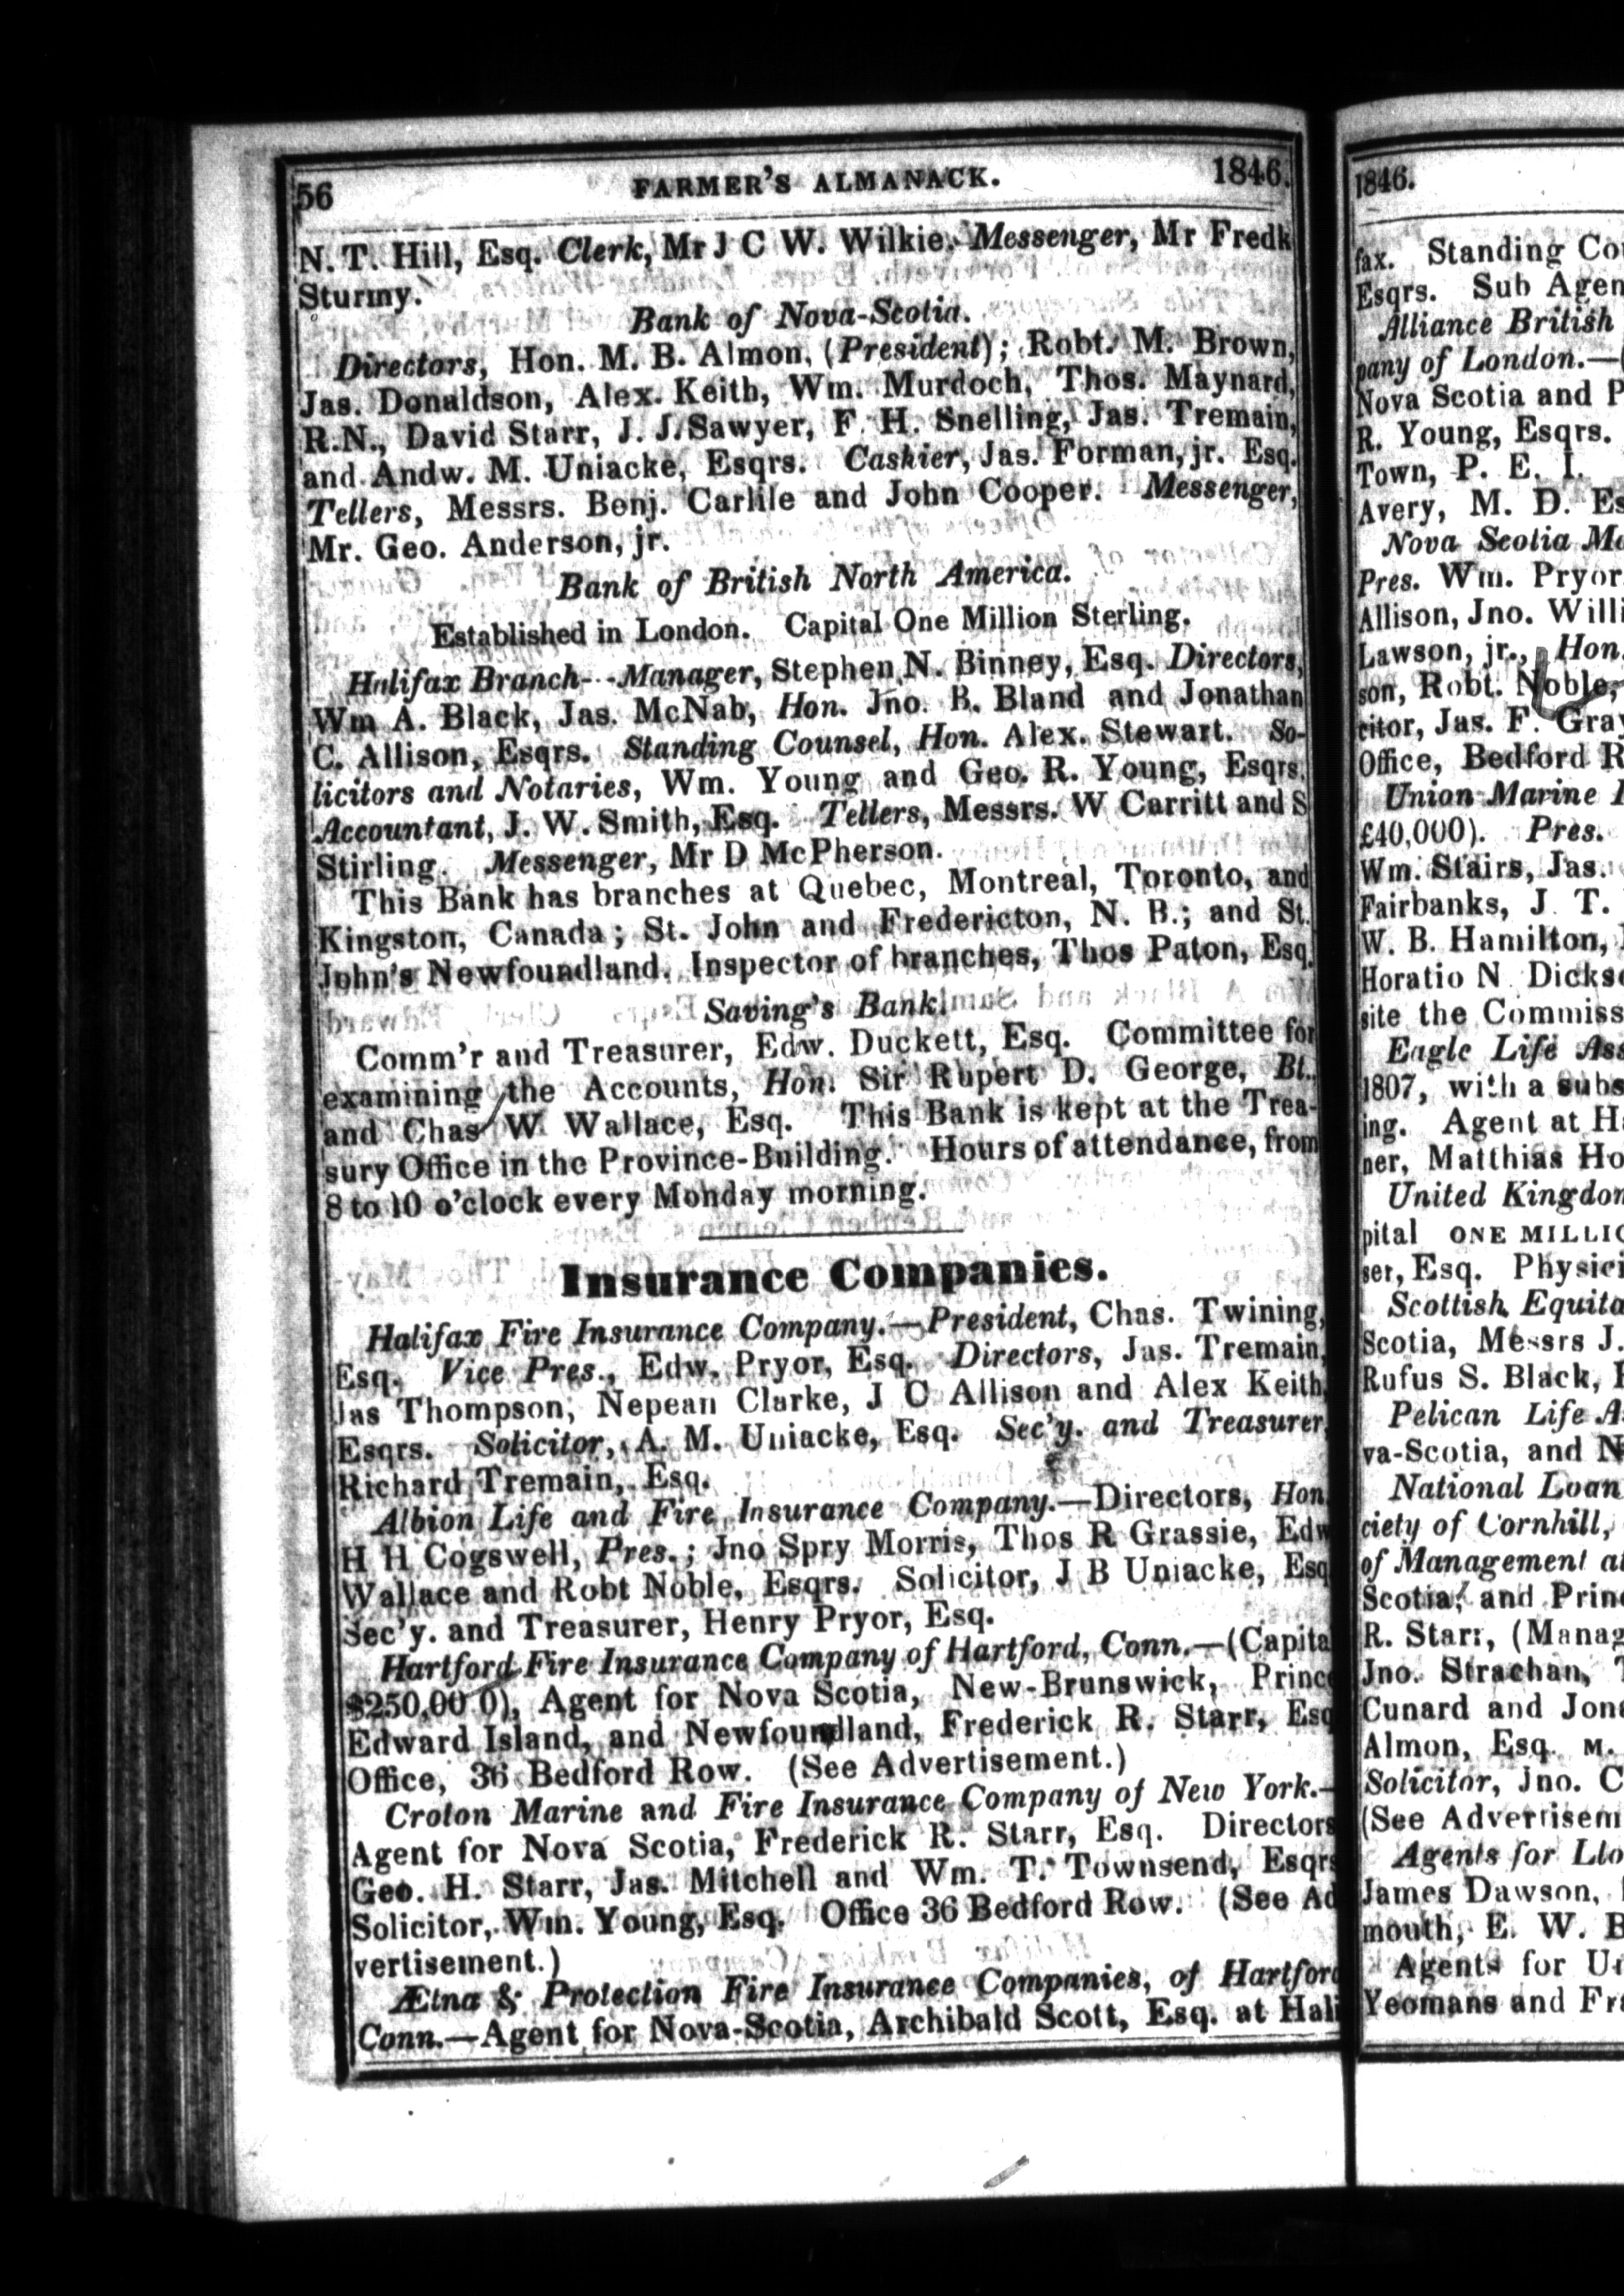 56 FARMER'S ALMANACK. 1846.
N. T. Hill, Esq. Clerk, Mr J C W. Wilkie. Messenger, Mr Fredk
Sturmy.
Bank of Nova-Scotia.
Directors, Hon. M. B. Almon, (President); Robt. M. Brown,
Jas. Donaldson, Alex. Keith, Wm. Murdoch, Thos. Maynard,
R.N., David Starr, J. J. Sawyer, F. H. Snelling, Jas. Tremain,
and Andw. M. Uniacke, Esqrs. Cashier, Jas. Forman, jr. Esq.
Tellers, Messrs. Benj. Carlile and John Cooper. Messenger,
Mr. Geo. Anderson, jr.
Bank of British North America.
Established in London. Capital One Million Sterling.
Halifax Branch--Manager, Stephen N. Binney, Esq. Directors,
Wm A. Black, Jas. McNab, Hon. Jno. B. Bland and Jonathan
C. Allison, Esqrs. Standing Counsel, Hon. Alex. Stewart. So-
licitors and Notaries, Wm. Young and Geo. R. Young, Esqrs.
Accountant, J. W. Smith, Esq. Tellers, Messrs. W Carritt and S
Stirling. Messenger, Mr D McPherson.
This Bank has branches at Quebec, Montreal, Toronto, and
Kingston, Canada; St. John and Fredericton, N. B.; and St.
John's Newfoundland. Inspector of branches, Thos Paton, Esq.
Saving's Bank.
Comm'r and Treasurer, Edw. Duckett, Esq. Committee for
examining the Accounts, Hon. Sir Rupert D. George, Bt.
and Chas W. Wallace, Esq. This Bank is kept at the Trea-
sury Office in the Province-Building. Hours of attendance, from
8 to 10 o'clock every Monday morning.
Insurance Companies.
Halifax Fire Insurance Company.—President, Chas. Twining,
Esq. Vice Pres., Edw. Pryor, Esq. Directors, Jas. Tremain,
Jas Thompson, Nepean Clarke, J C Allison and Alex Keith,
Esqrs. Solicitor, A. M. Uniacke, Esq. Sec'y. and Treasurer,
Richard Tremain, Esq.
Albion Life and Fire Insurance Company.—Directors, Hon.
H H Cogswell, Pres.; Jno Spry Morris, Thos R Grassie, Edw
Wallace and Robt Noble, Esqrs. Solicitor, J B Uniacke, Esq
Sec'y. and Treasurer, Henry Pryor, Esq.
Hartford Fire Insurance Company of Hartford, Conn.—(Capita
$250,00 0), Agent for Nova Scotia, New-Brunswick, Prince
Edward Island, and Newfoundland, Frederick R. Starr, Esq
Office, 36 Bedford Row. (See Advertisement.)
Croton Marine and Fire Insurance Company of New York.—
Agent for Nova Scotia, Frederick R. Starr, Esq. Directors
Geo. H. Starr, Jas. Mitchell and Wm. T. Townsend, Esqrs
Solicitor, Wm. Young, Esq. Office 36 Bedford Row. (See Ad
vertisement.)
Ætna & Protection Fire Insurance Companies, of Hartford
Conn.—Agent for Nova-Scotia, Archibald Scott, Esq. at Hali
1846.
fax. Standing Cou
Esqrs. Sub Agen
Alliance British
pany of London.—
Nova Scotia and P
R. Young, Esqrs.
Town, P. E. I.
Avery, M. D. Es
Nova Scotia Ma
Pres. Wm. Pryor
Allison, Jno. Willi
Lawson, jr., Hon.
son, Robt. Noble,
citor, Jas. F. Gray
Office, Bedford R
Union Marine I
£40,000). Pres.
Wm. Stairs, Jas.
Fairbanks, J. T.
W. B. Hamilton,
Horatio N Dickso
site the Commiss
Eagle Life Ass
1807, with a subs
ing. Agent at Ha
ner, Matthias Ho
United Kingdom
pital ONE MILLIO
ser, Esq. Physici
Scottish Equita
Scotia, Messrs J.
Rufus S. Black,
Pelican Life A
va-Scotia, and N
National Loan
ciety of Cornhill,
of Management at
Scotia, and Princ
R. Starr, (Manag
Jno. Strachan,
Cunard and Jona
Almon, Esq. M.
Solicitor, Jno. C
(See Advertisem
Agents for Llo
James Dawson,
mouth, E. W. B
Agents for Un
Yeomans and Fra